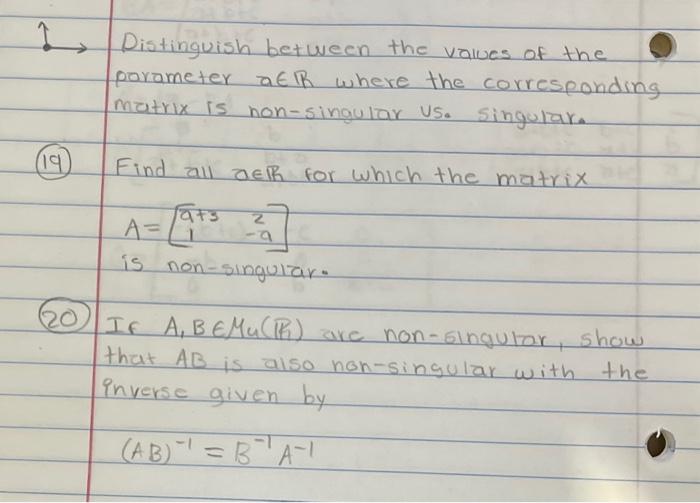 Distinguish between the values of the
parameter a∈ℝ where the corresponding
matrix is non-singular vs. singular.
(19) Find all a∈ℝ for which the matrix
A = [a+3 2
1 -a]
is non-singular.
(20) If A, B ∈ Mu(ℝ) are non-singular, show
that AB is also non-singular with the
inverse given by
(AB)⁻¹ = B⁻¹ A⁻¹